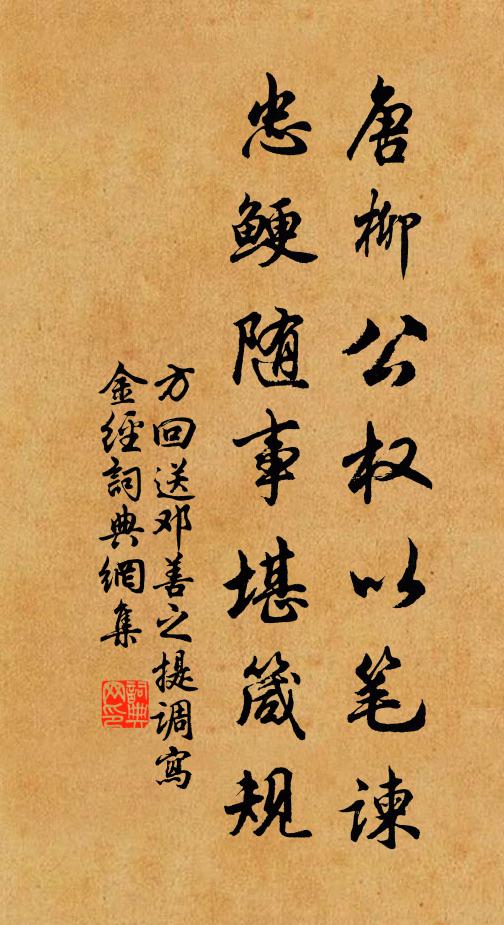 唐柳公权以笔谏
忠鲠随事堪箴规
方回送邓善之提调写
金經詞典網集
詞典網印